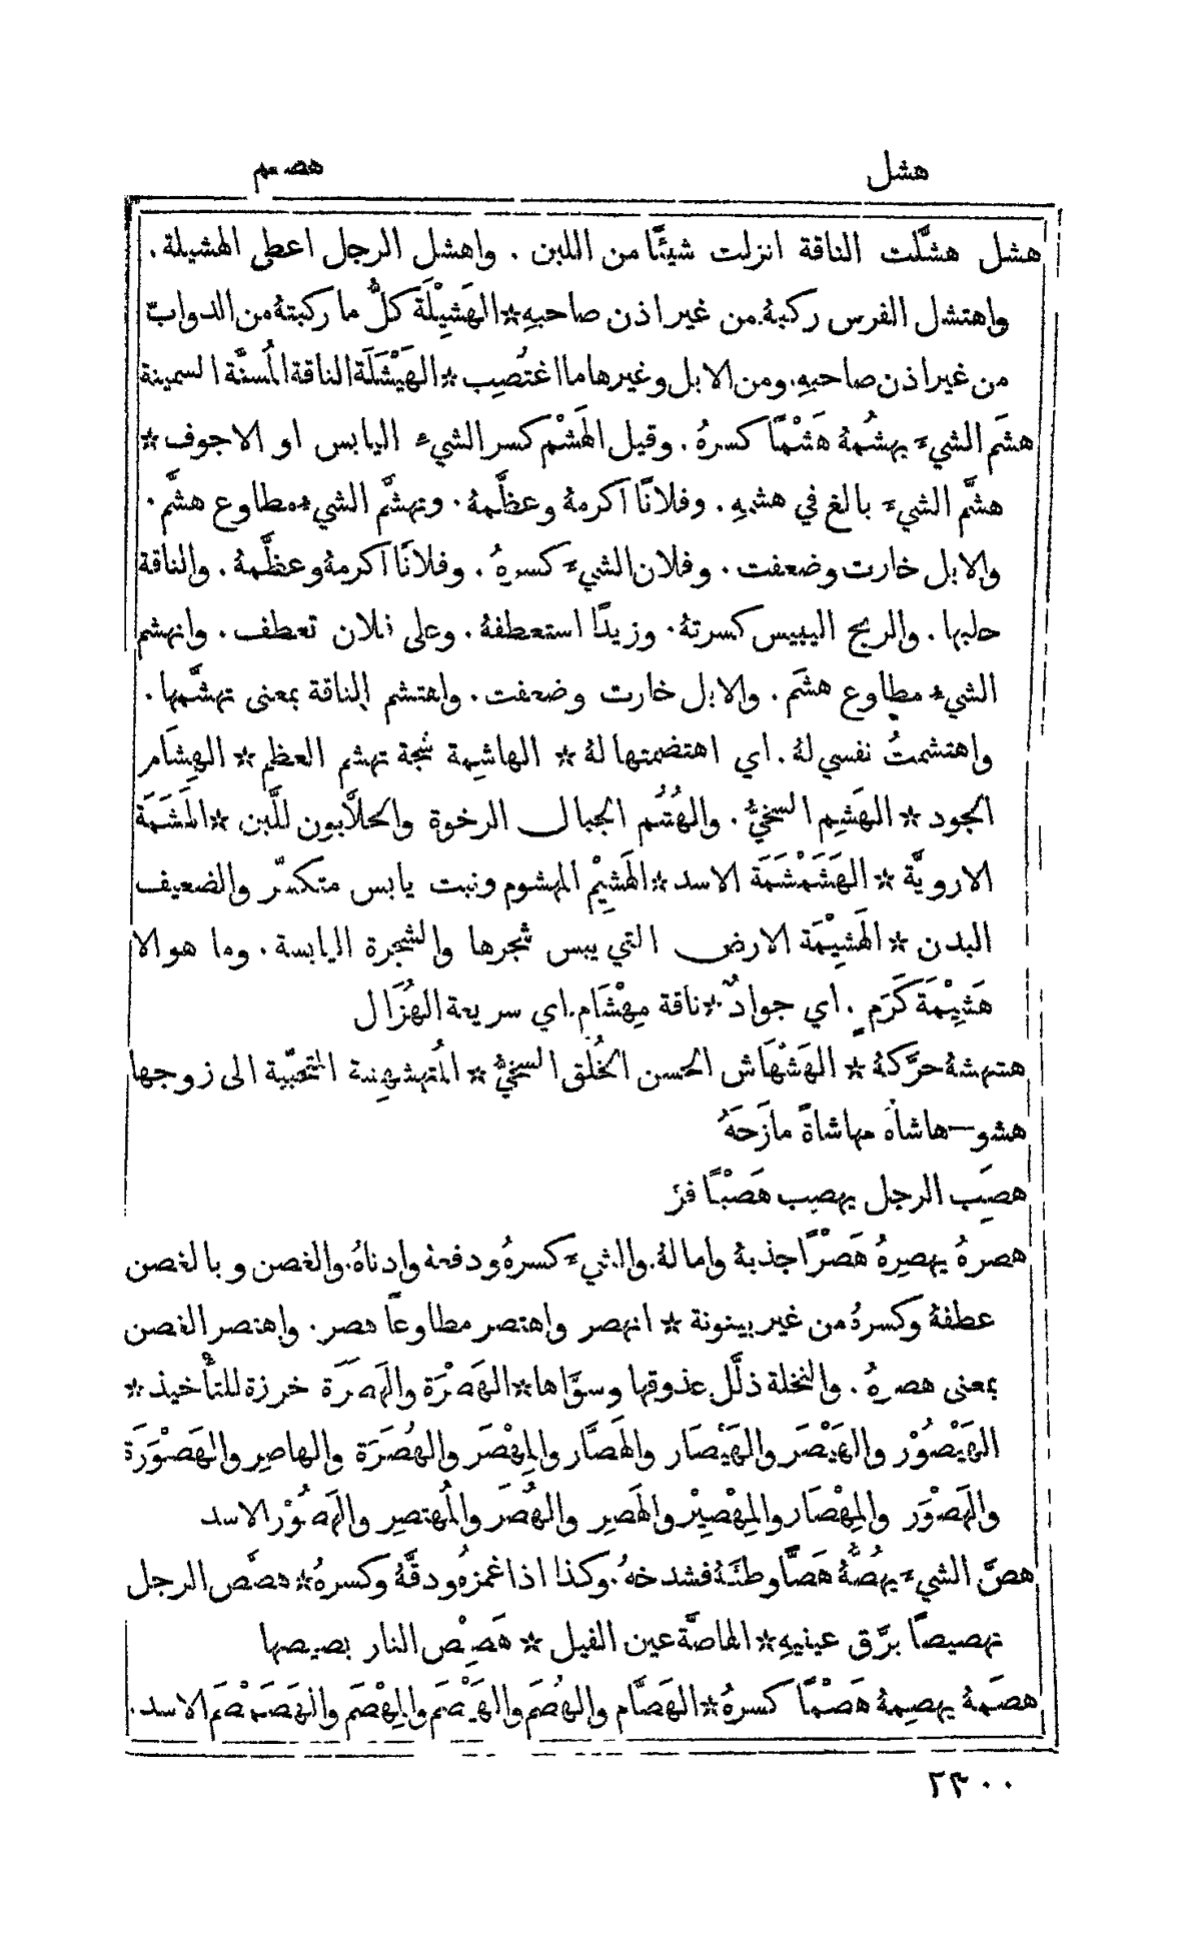 هشل
هصم
هشل هشَّلت الناقة انزلت شيئًا من اللبن . واهشل الرجل اعطى الهشيلة .
واهتشل الفرس ركبهُ من غير اذن صاحبهِ * الهَشِيْلَة كلُّ ما ركبتهُ من الدوابّ
من غير اذن صاحبهِ . ومن الابل وغيرها ما اغتُصِب * الهَيْشَلَة الناقة المُسنَّة السمينة
هشَم الشيءَ يهشُمهُ هَشْمًا كسرهُ . وقيل الهَشْم كسر الشيء اليابس او الاجوف *
هشَّم الشيءَ بالغ في هشمهِ . وفلانًا اكرمهُ وعظَّمهُ . وتهشَّم الشيءُ مطاوع هشَّم .
والابل خارت وضعفت . وفلان الشيءَ كسرهُ . وفلانًا اكرمهُ وعظَّمهُ . والناقة
حلبها . والريح اليبيس كسرتهُ . وزيدًا استعطفهُ . وعلى فلان تعطف . وانهشم
الشيءُ مطاوع هشَم . والابل خارت وضعفت . واهتشم الناقة بمعنى تهشَّمها .
واهتشمتُ نفسي لهُ . اي اهتضمتها لهُ * الهاشِمة شجة تهشم العظم * الهِشَام
الجود * الهَشِم السخيُّ . والهُشُم الجبال الرخوة والحلَّابون للَّبن * الهَشَمَة
الارويَّة * الهَشَمْشَمَة الاسد * الهَشِيْم المهشوم ونبت يابس متكسّر والضعيف
البدن * الهَشِيْمَة الارض التي يبس شجرها والشجرة اليابسة . وما هو الا
هَشِيْمَة كَرَمٍ . اي جوادٌ * ناقة مِهْشَام . اي سريعة الهُزَال
هشهشهُ حرَّكهُ * الهَشْهَاش الحسن الخُلُق السخيُّ * المُتهشهِشة المتحبّبة الى زوجها
هشو — هاشاهُ مهاشاةً مازَحَهُ
هصِب الرجل يهصِب هَصْبًا فرَّ
هصرهُ يهصِرهُ هَصْرًا جذبهُ وامالهُ . والشيءَ كسرهُ ودفعهُ وادناهُ . والغصن وبالغصن
عطفهُ وكسرهُ من غير بينونة * انهصر واهتصر مطاوعا هصر . واهتصر الغصن
بمعنى هصرهُ . والنخلة ذلَّل عذوقها وسوَّاها * الهَصْرَة والهَصَرَة خرزة للتأخيذ *
الهَيْصُوْر والهَيْصَر والهَيْصَار والهَصَّار والمِهْصَر والهُصَرَة والهاصِر والهَصْوَرَة
والهَصْوَر والمِهْصَار والمِهْصِيْر والهَصِر والهُصَر والمُهتصِر والهَصُوْر الاسد
هصَّ الشيءَ يهُصُّهُ هَصًّا وطئهُ فشدخهُ . وكذا اذا غمزهُ ودقَّهُ وكسرهُ * هصَّص الرجل
تهصيصًا برَّق عينيهِ * الهاصَّة عين الفيل * هَصِيْص النار بصيصها
هصَمهُ يهصِمهُ هَصْمًا كسرهُ * الهَصَّام والهُصَم والهَيْصَم والمِهْصَم والهَصَمْصَم الاسد .
٢٣٠٠